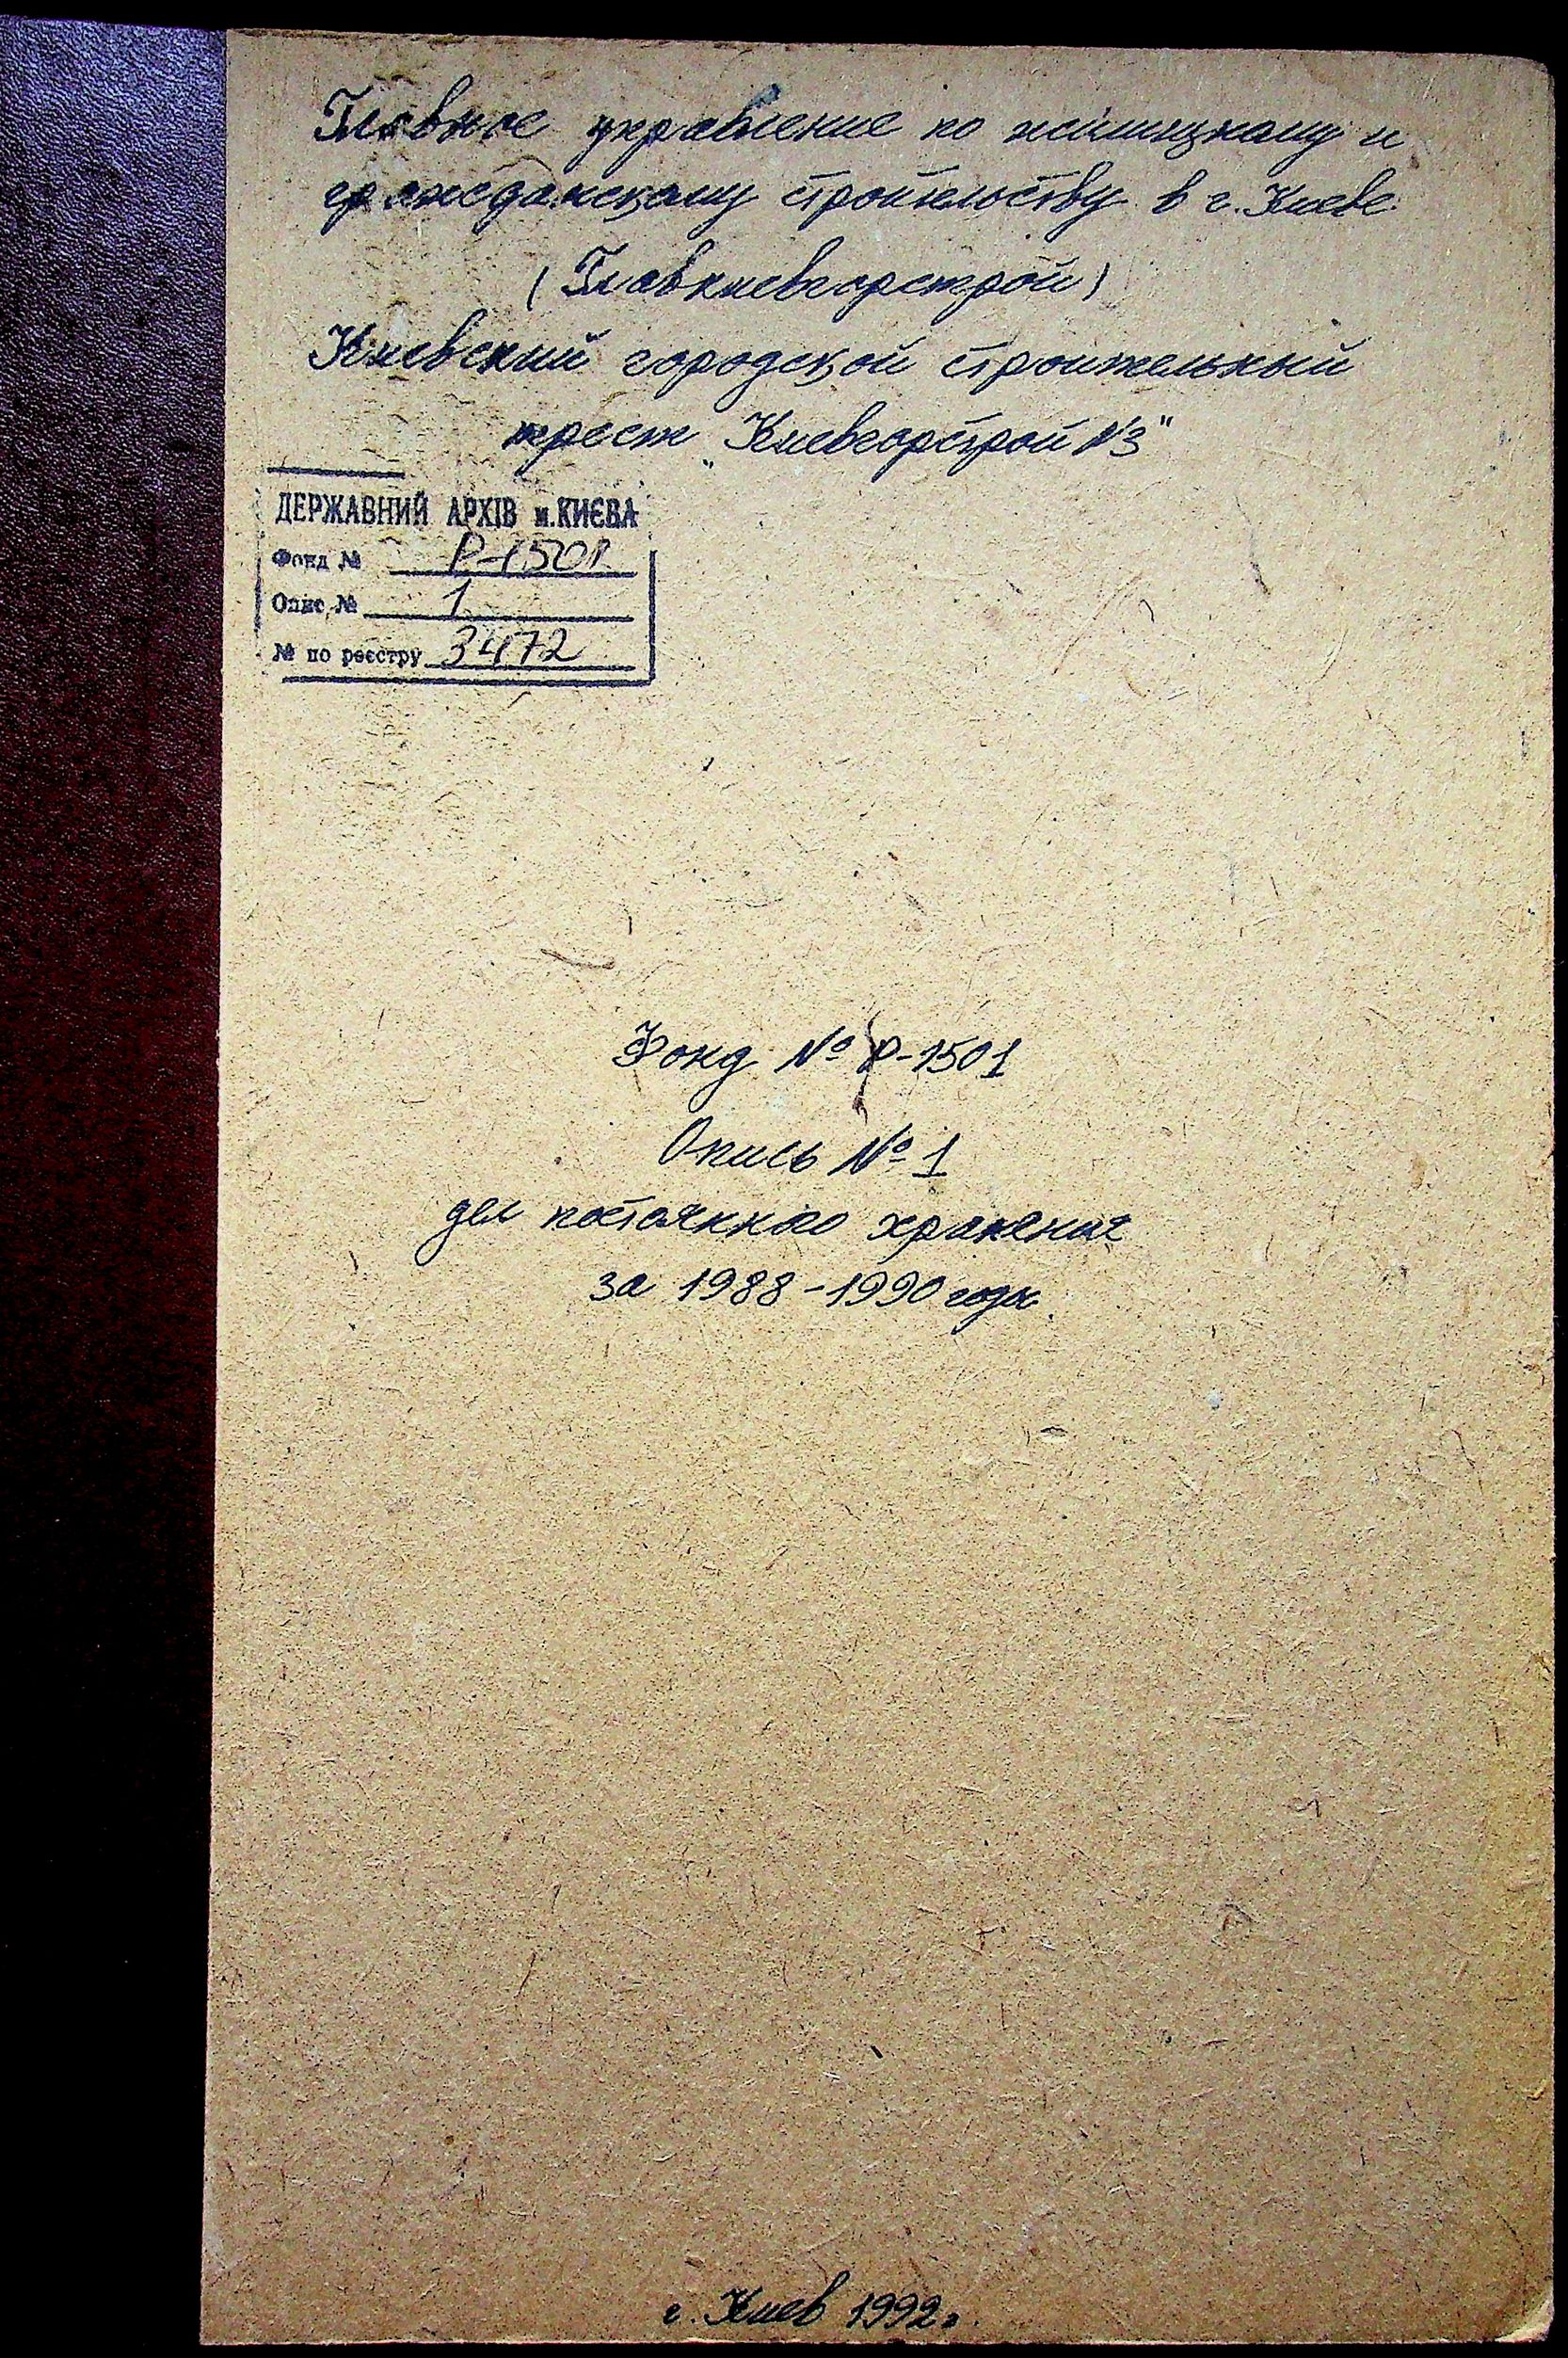 Главное управление по жилищному и
гражданскому строительству в г. Киеве
(Главкиевгорстрой)
Киевский городской строительный
трест „Киевгорстрой №3"
ДЕРЖАВНИЙ АРХІВ м.КИЄВА
Фонд № Р-1501
Опис № 1
№ по реєстру 3472
Фонд № Р-1501
Опись № 1
дел постоянного хранения
за 1988-1990 годы.
г. Киев 1992г.